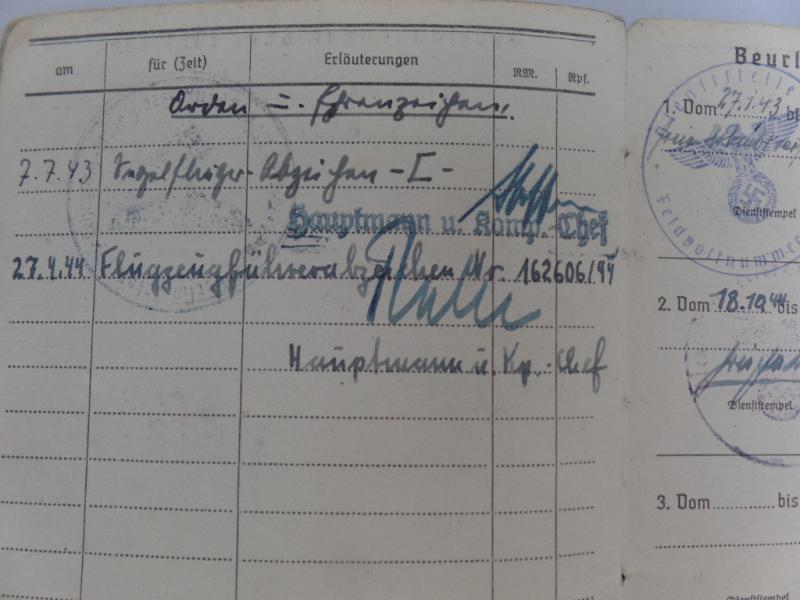 am
für (Zeit)
Erläuterungen
RM.
Rpf.
Orden u. Ehrenzeichen.
7.7.43 Segelflieger-Abzeichen -I-
Hauptmann u. Komp.-Chef
27.4.44 Flugzeugführerabzeichen Nr. 162606/44
Hauptmann u. Kp.-Chef
Beurl
1. Vom 27.1.43 bis
Dienststempel
Dienststelle
Feldpostnummer
2. Vom 18.10.44 bis
Dienststempel
3. Vom bis
Dienststempel